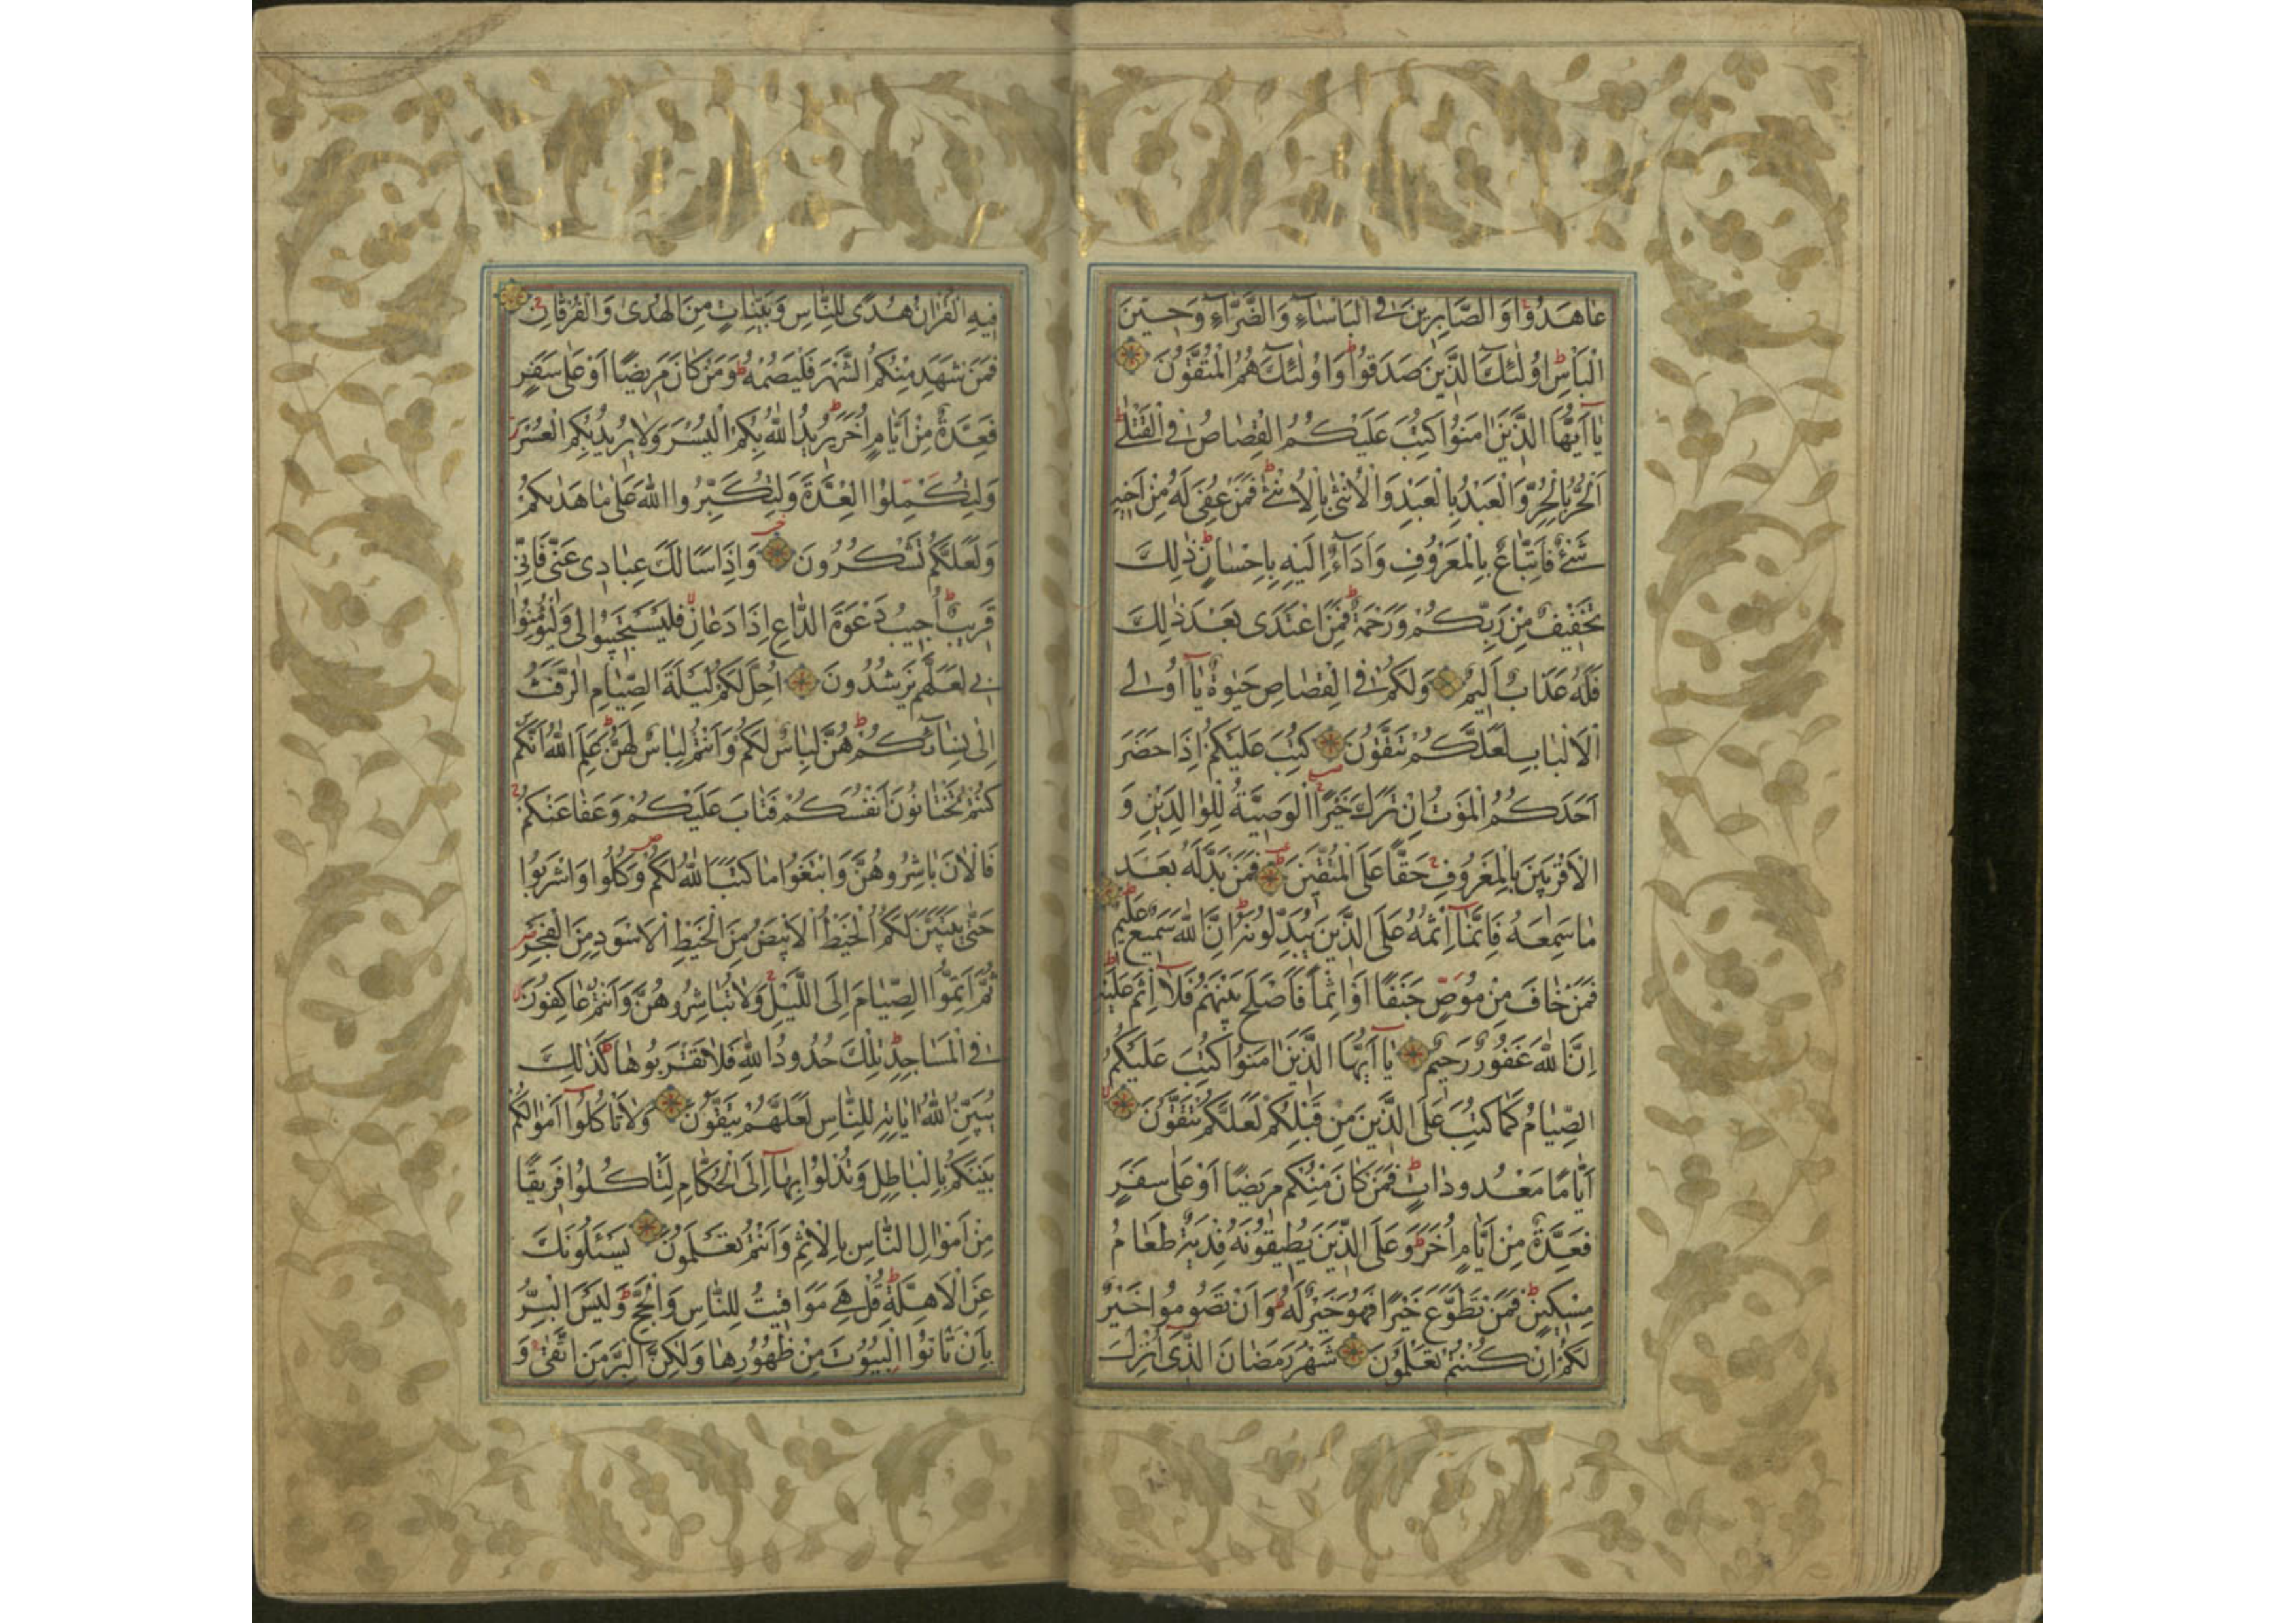 عَاهَدُوا وَالصَّابِرِينَ فِي الْبَأْسَاءِ وَالضَّرَّاءِ وَحِينَ
الْبَأْسِ أُولٰئِكَ الَّذِينَ صَدَقُوا وَأُولٰئِكَ هُمُ الْمُتَّقُونَ
يَا أَيُّهَا الَّذِينَ اٰمَنُوا كُتِبَ عَلَيْكُمُ الْقِصَاصُ فِي الْقَتْلٰى
اَلْحُرُّ بِالْحُرِّ وَالْعَبْدُ بِالْعَبْدِ وَالْأُنْثٰى بِالْأُنْثٰى فَمَنْ عُفِيَ لَهُ مِنْ أَخِيهِ
شَيْءٌ فَاتِّبَاعٌ بِالْمَعْرُوفِ وَأَدَاءٌ إِلَيْهِ بِإِحْسَانٍ ذٰلِكَ
تَخْفِيفٌ مِنْ رَبِّكُمْ وَرَحْمَةٌ فَمَنِ اعْتَدٰى بَعْدَ ذٰلِكَ
فَلَهُ عَذَابٌ أَلِيمٌ وَلَكُمْ فِي الْقِصَاصِ حَيٰوةٌ يَا أُولِي
الْأَلْبَابِ لَعَلَّكُمْ تَتَّقُونَ كُتِبَ عَلَيْكُمْ إِذَا حَضَرَ
أَحَدَكُمُ الْمَوْتُ إِنْ تَرَكَ خَيْرًا الْوَصِيَّةُ لِلْوَالِدَيْنِ وَ
الْأَقْرَبِينَ بِالْمَعْرُوفِ حَقًّا عَلَى الْمُتَّقِينَ فَمَنْ بَدَّلَهُ بَعْدَ
مَا سَمِعَهُ فَإِنَّمَا إِثْمُهُ عَلَى الَّذِينَ يُبَدِّلُونَهُ إِنَّ اللهَ سَمِيعٌ عَلِيمٌ
فَمَنْ خَافَ مِنْ مُوصٍ جَنَفًا أَوْ إِثْمًا فَأَصْلَحَ بَيْنَهُمْ فَلَا إِثْمَ عَلَيْهِ
إِنَّ اللهَ غَفُورٌ رَحِيمٌ يَا أَيُّهَا الَّذِينَ اٰمَنُوا كُتِبَ عَلَيْكُمُ
الصِّيَامُ كَمَا كُتِبَ عَلَى الَّذِينَ مِنْ قَبْلِكُمْ لَعَلَّكُمْ تَتَّقُونَ
أَيَّامًا مَعْدُودَاتٍ فَمَنْ كَانَ مِنْكُمْ مَرِيضًا أَوْ عَلٰى سَفَرٍ
فَعِدَّةٌ مِنْ أَيَّامٍ أُخَرَ وَعَلَى الَّذِينَ يُطِيقُونَهُ فِدْيَةٌ طَعَامُ
مِسْكِينٍ فَمَنْ تَطَوَّعَ خَيْرًا فَهُوَ خَيْرٌ لَهُ وَأَنْ تَصُومُوا خَيْرٌ
لَكُمْ إِنْ كُنْتُمْ تَعْلَمُونَ شَهْرُ رَمَضَانَ الَّذِي أُنْزِلَ
فِيهِ الْقُرْاٰنُ هُدًى لِلنَّاسِ وَبَيِّنَاتٍ مِنَ الْهُدٰى وَالْفُرْقَانِ
فَمَنْ شَهِدَ مِنْكُمُ الشَّهْرَ فَلْيَصُمْهُ وَمَنْ كَانَ مَرِيضًا أَوْ عَلٰى سَفَرٍ
فَعِدَّةٌ مِنْ أَيَّامٍ أُخَرَ يُرِيدُ اللهُ بِكُمُ الْيُسْرَ وَلَا يُرِيدُ بِكُمُ الْعُسْرَ
وَلِتُكْمِلُوا الْعِدَّةَ وَلِتُكَبِّرُوا اللهَ عَلٰى مَا هَدٰيكُمْ
وَلَعَلَّكُمْ تَشْكُرُونَ وَإِذَا سَأَلَكَ عِبَادِي عَنِّي فَإِنِّي
قَرِيبٌ أُجِيبُ دَعْوَةَ الدَّاعِ إِذَا دَعَانِ فَلْيَسْتَجِيبُوا لِي وَلْيُؤْمِنُوا
بِي لَعَلَّهُمْ يَرْشُدُونَ أُحِلَّ لَكُمْ لَيْلَةَ الصِّيَامِ الرَّفَثُ
إِلٰى نِسَائِكُمْ هُنَّ لِبَاسٌ لَكُمْ وَأَنْتُمْ لِبَاسٌ لَهُنَّ عَلِمَ اللهُ أَنَّكُمْ
كُنْتُمْ تَخْتَانُونَ أَنْفُسَكُمْ فَتَابَ عَلَيْكُمْ وَعَفَا عَنْكُمْ
فَالْاٰنَ بَاشِرُوهُنَّ وَابْتَغُوا مَا كَتَبَ اللهُ لَكُمْ وَكُلُوا وَاشْرَبُوا
حَتّٰى يَتَبَيَّنَ لَكُمُ الْخَيْطُ الْأَبْيَضُ مِنَ الْخَيْطِ الْأَسْوَدِ مِنَ الْفَجْرِ
ثُمَّ أَتِمُّوا الصِّيَامَ إِلَى اللَّيْلِ وَلَا تُبَاشِرُوهُنَّ وَأَنْتُمْ عَاكِفُونَ
فِي الْمَسَاجِدِ تِلْكَ حُدُودُ اللهِ فَلَا تَقْرَبُوهَا كَذٰلِكَ
يُبَيِّنُ اللهُ اٰيَاتِهِ لِلنَّاسِ لَعَلَّهُمْ يَتَّقُونَ وَلَا تَأْكُلُوا أَمْوَالَكُمْ
بَيْنَكُمْ بِالْبَاطِلِ وَتُدْلُوا بِهَا إِلَى الْحُكَّامِ لِتَأْكُلُوا فَرِيقًا
مِنْ أَمْوَالِ النَّاسِ بِالْإِثْمِ وَأَنْتُمْ تَعْلَمُونَ يَسْئَلُونَكَ
عَنِ الْأَهِلَّةِ قُلْ هِيَ مَوَاقِيتُ لِلنَّاسِ وَالْحَجِّ وَلَيْسَ الْبِرُّ
بِأَنْ تَأْتُوا الْبُيُوتَ مِنْ ظُهُورِهَا وَلٰكِنَّ الْبِرَّ مَنِ اتَّقٰى وَ